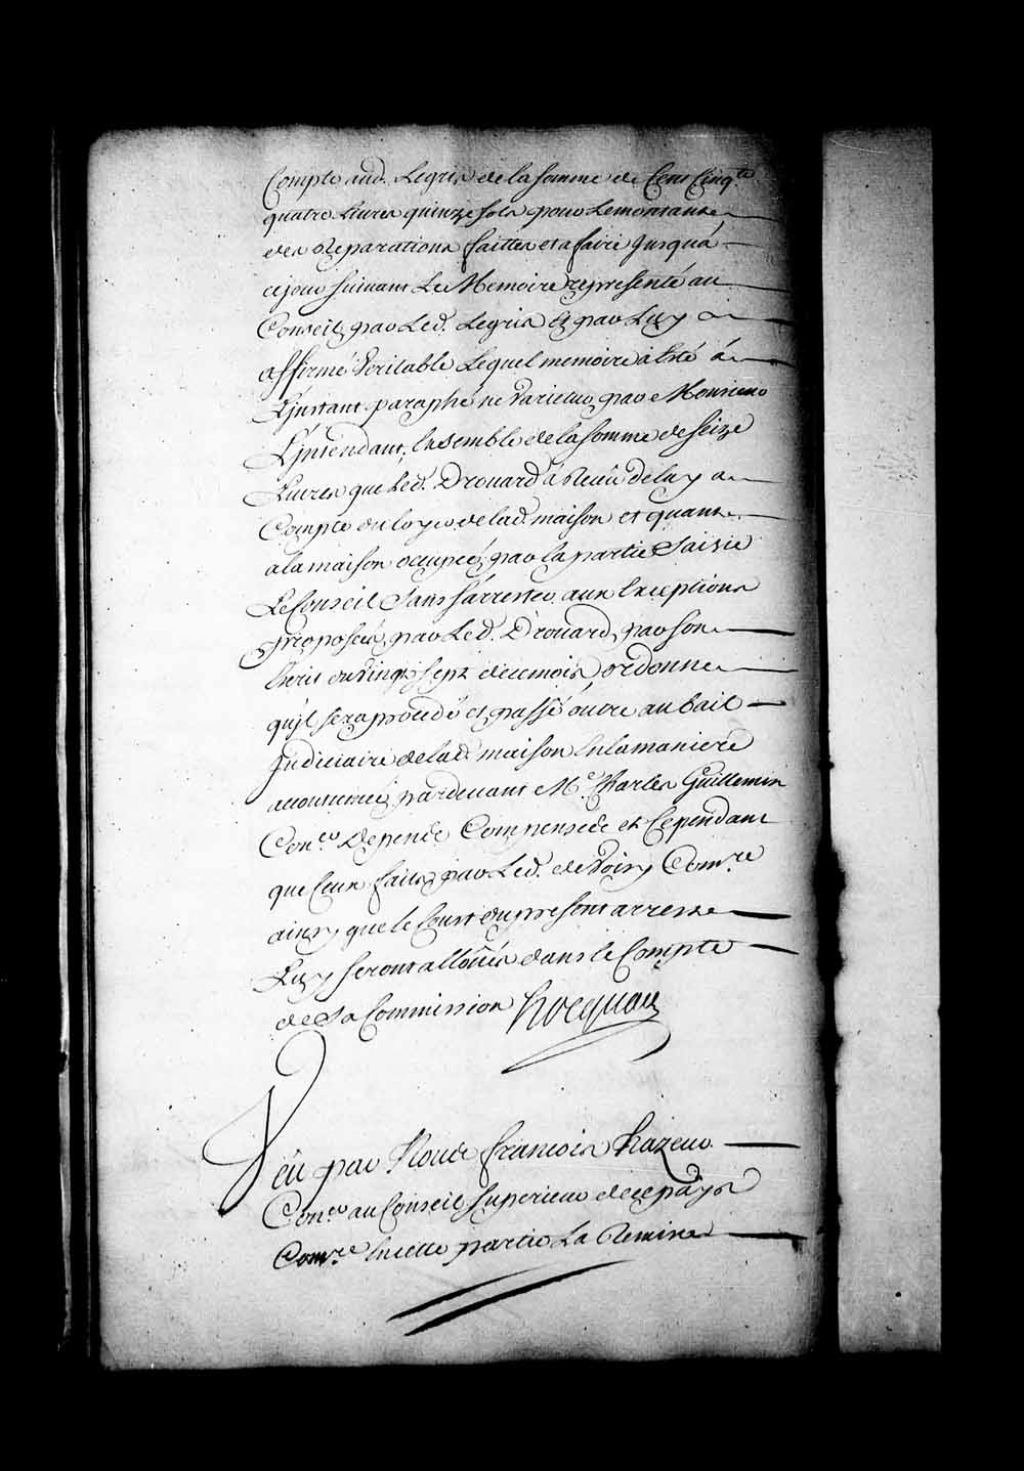 Compte aud. Legris de la somme de Cent Cinq.te
quatre Livres quinze sols pour Le montant
des Reparations faittes et a faire Jusqu'á
ce jour suivant Le Memoire representé au
Conseil par Led. Legris Et par Luy
affirmé Veritable Lequel memoire à Esté á
L'jnstant paraphé ne Varietur par Monsieur
L'jntendant, Ensemble de la somme de seize
Livres que Led. Drouard à Receû de luy a
Compte du loyer de lad. maison et quant
a la maison occupée par la partie Saisie
Le Conseil Sans s'árrester aux Exceptions
proposées par Led. Drouard, par son
Ecrit du Vingt sept de ce mois ordonne
qu'jl sera procedé et passé outre au bail
Judiciaire de lad. maison En la maniere
accoutumée pardevant M.e Charles Guillemin
Con.er Depens Compensés et Cependant
que Ceux faits par Led. de Voisy Com.re
ainsy que le Coust du present arrest
Luy seront alloüés dans le Compte
de Sa Commission Hocquart
Veu par Nous francois hazeur
Con.er au Conseil Superieur de ce päys
Com.re En cette partie La Remise